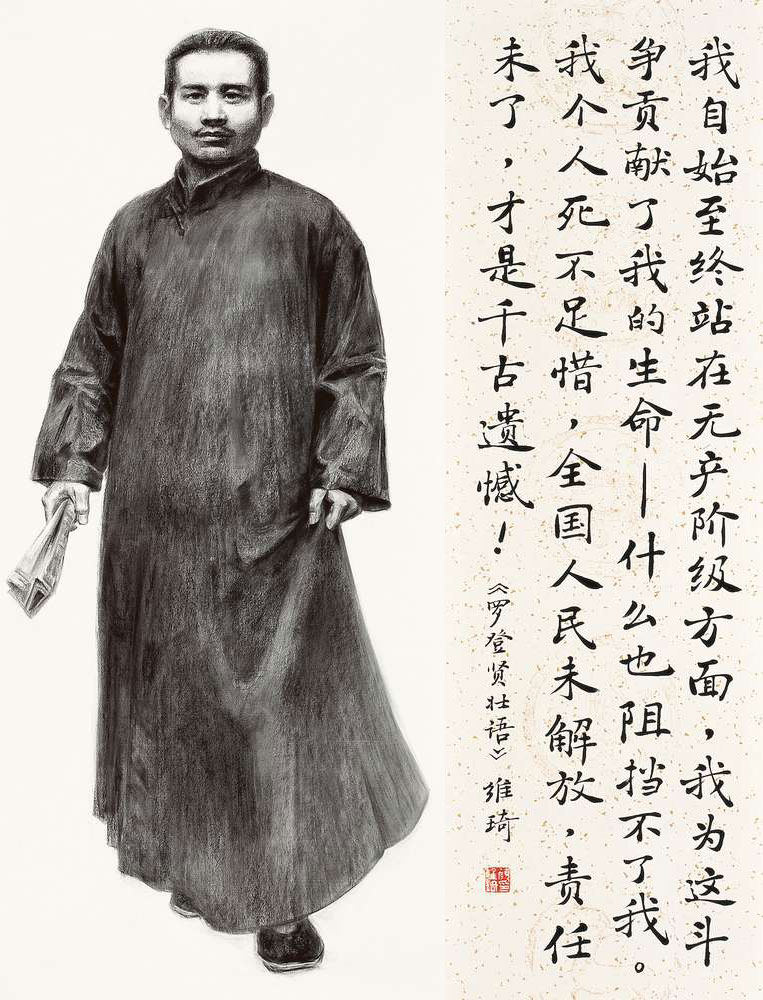 我自始至终站在无产阶级方面，我为这斗
争贡献了我的生命—什么也阻挡不了我。
我个人死不足惜，全国人民未解放，责任
未了，才是千古遗憾！
《罗登贤壮语》维琦